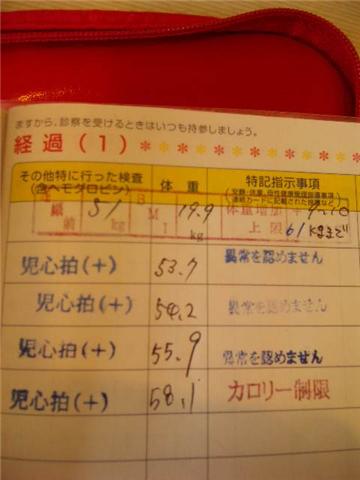 ますから、診察を受けるときはいつも持参しましょう。
経過(1)
その他特に行った検査 体重 特記指示事項
(含ヘモグロビン)
前 51 kg BMI 19.9 体重増加 +9~10
kg 上限 61kgまで
児心拍(+) 53.7 異常を認めません
児心拍(+) 54.2 異常を認めません
児心拍(+) 55.9 異常を認めません
児心拍(+) 58.1 カロリー制限